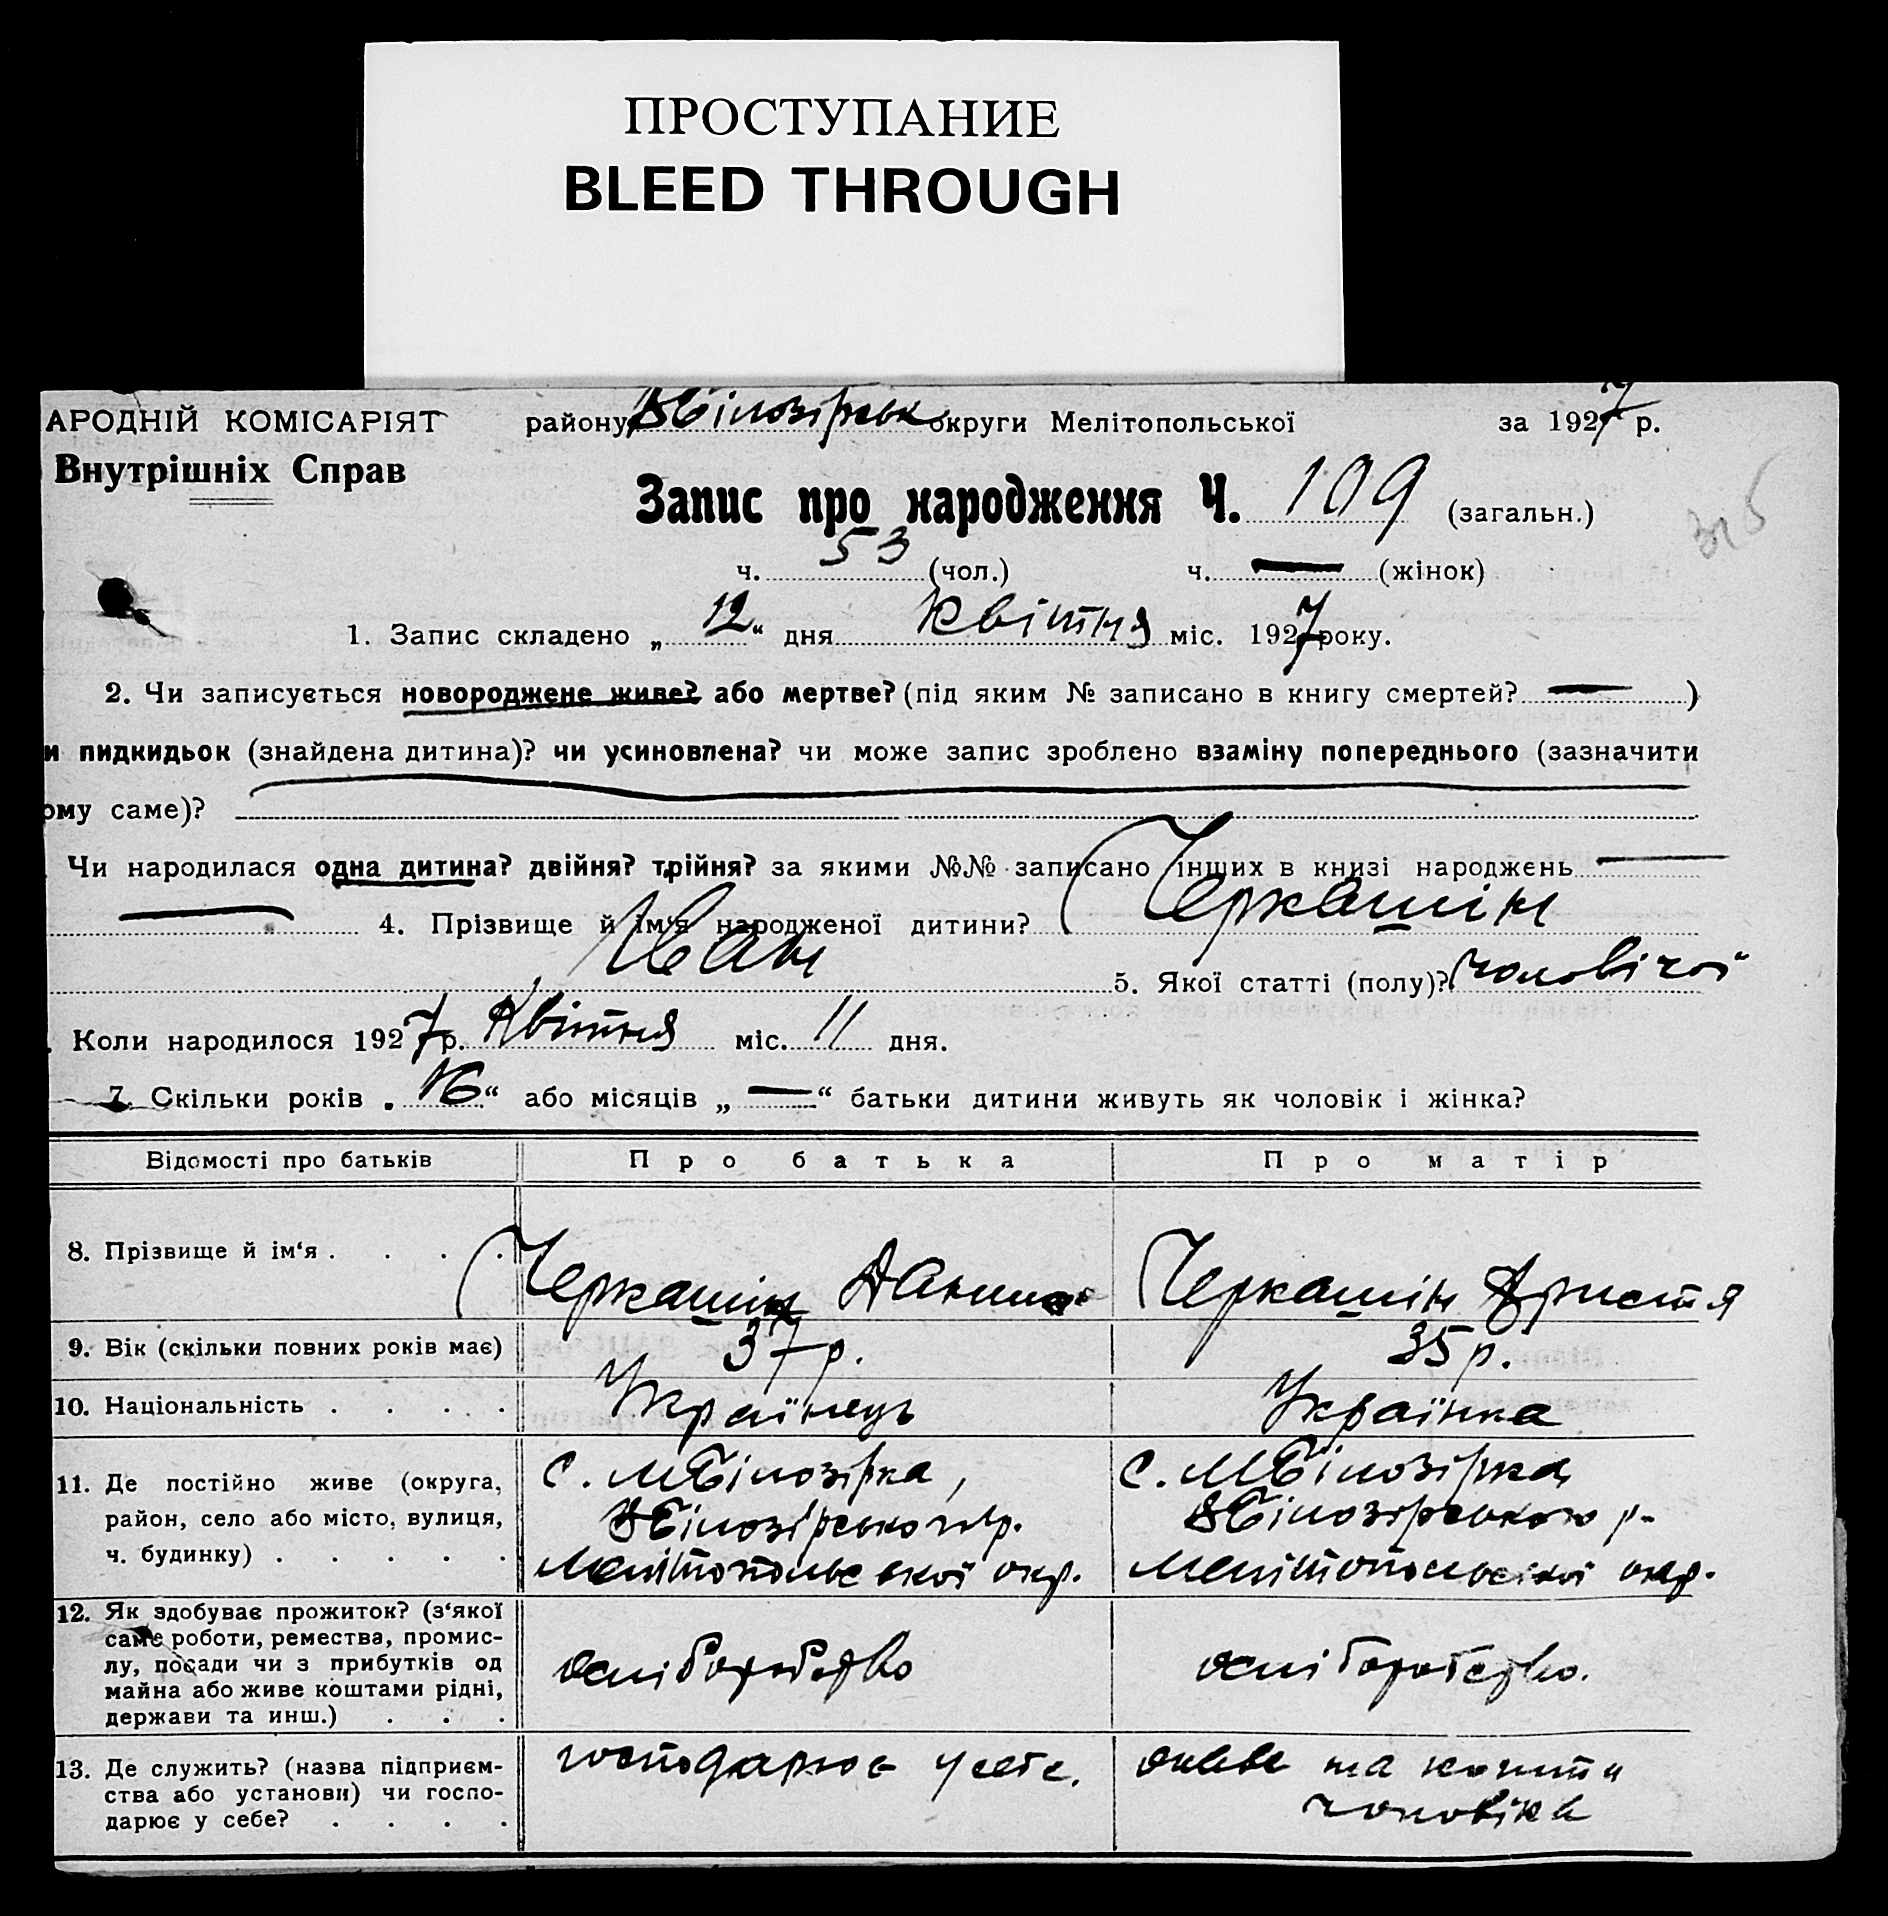 ПРОСТУПАНИЕ
BLEED THROUGH
АРОДНІЙ КОМІСАРІЯТ району ВБілозірськ округи Мелітопольської за 1927 р.
Внутрішніх Справ
Запис про народження Ч. 109 (загальн.)
315
ч. 53 (чол.) ч. — (жінок)
1. Запис складено „ 12 “ дня Квітня міс. 1927 року.
2. Чи записується новороджене живе? або мертве? (під яким № записано в книгу смертей? — )
и пидкидьок (знайдена дитина)? чи усиновлена? чи може запис зроблено взаміну попереднього (зазначити
ому саме)?
Чи народилася одна дитина? двійня? трійня? за якими №№ записано інших в книзі народжень —
— 4. Прізвище й ім'я народженої дитини? Черкашін
Іван 5. Якої статті (полу)? чоловічої
. Коли народилося 1927 р. Квітня міс. 11 дня.
7. Скільки років „ 16 “ або місяців „ — “ батьки дитини живуть як чоловік і жінка?
Відомості про батьків Про батька Про матір
8. Прізвище й ім'я . . . . Черкашін Данило Черкашін Христя
9. Вік (скільки повних років має) 37 р. 35 р.
10. Національність . . . . Українець Українка
11. Де постійно живе (округа, с. МБілозірка, с. МБілозірка,
район, село або місто, вулиця, ВБілозірського р. ВБілозірського р.
ч. будинку) . . . . . Мелітопольської окр. Мелітопольської окр.
12. Як здобуває прожиток? (з'якої
саме роботи, ремества, промис-
лу, посади чи з прибутків од хліборобство хліборобство.
майна або живе коштами рідні,
держави та инш.) . . .
13. Де служить? (назва підприєм- господарює у себе. на кошти
ства або установи) чи госпо- чоловіка
дарює у себе? . . . .